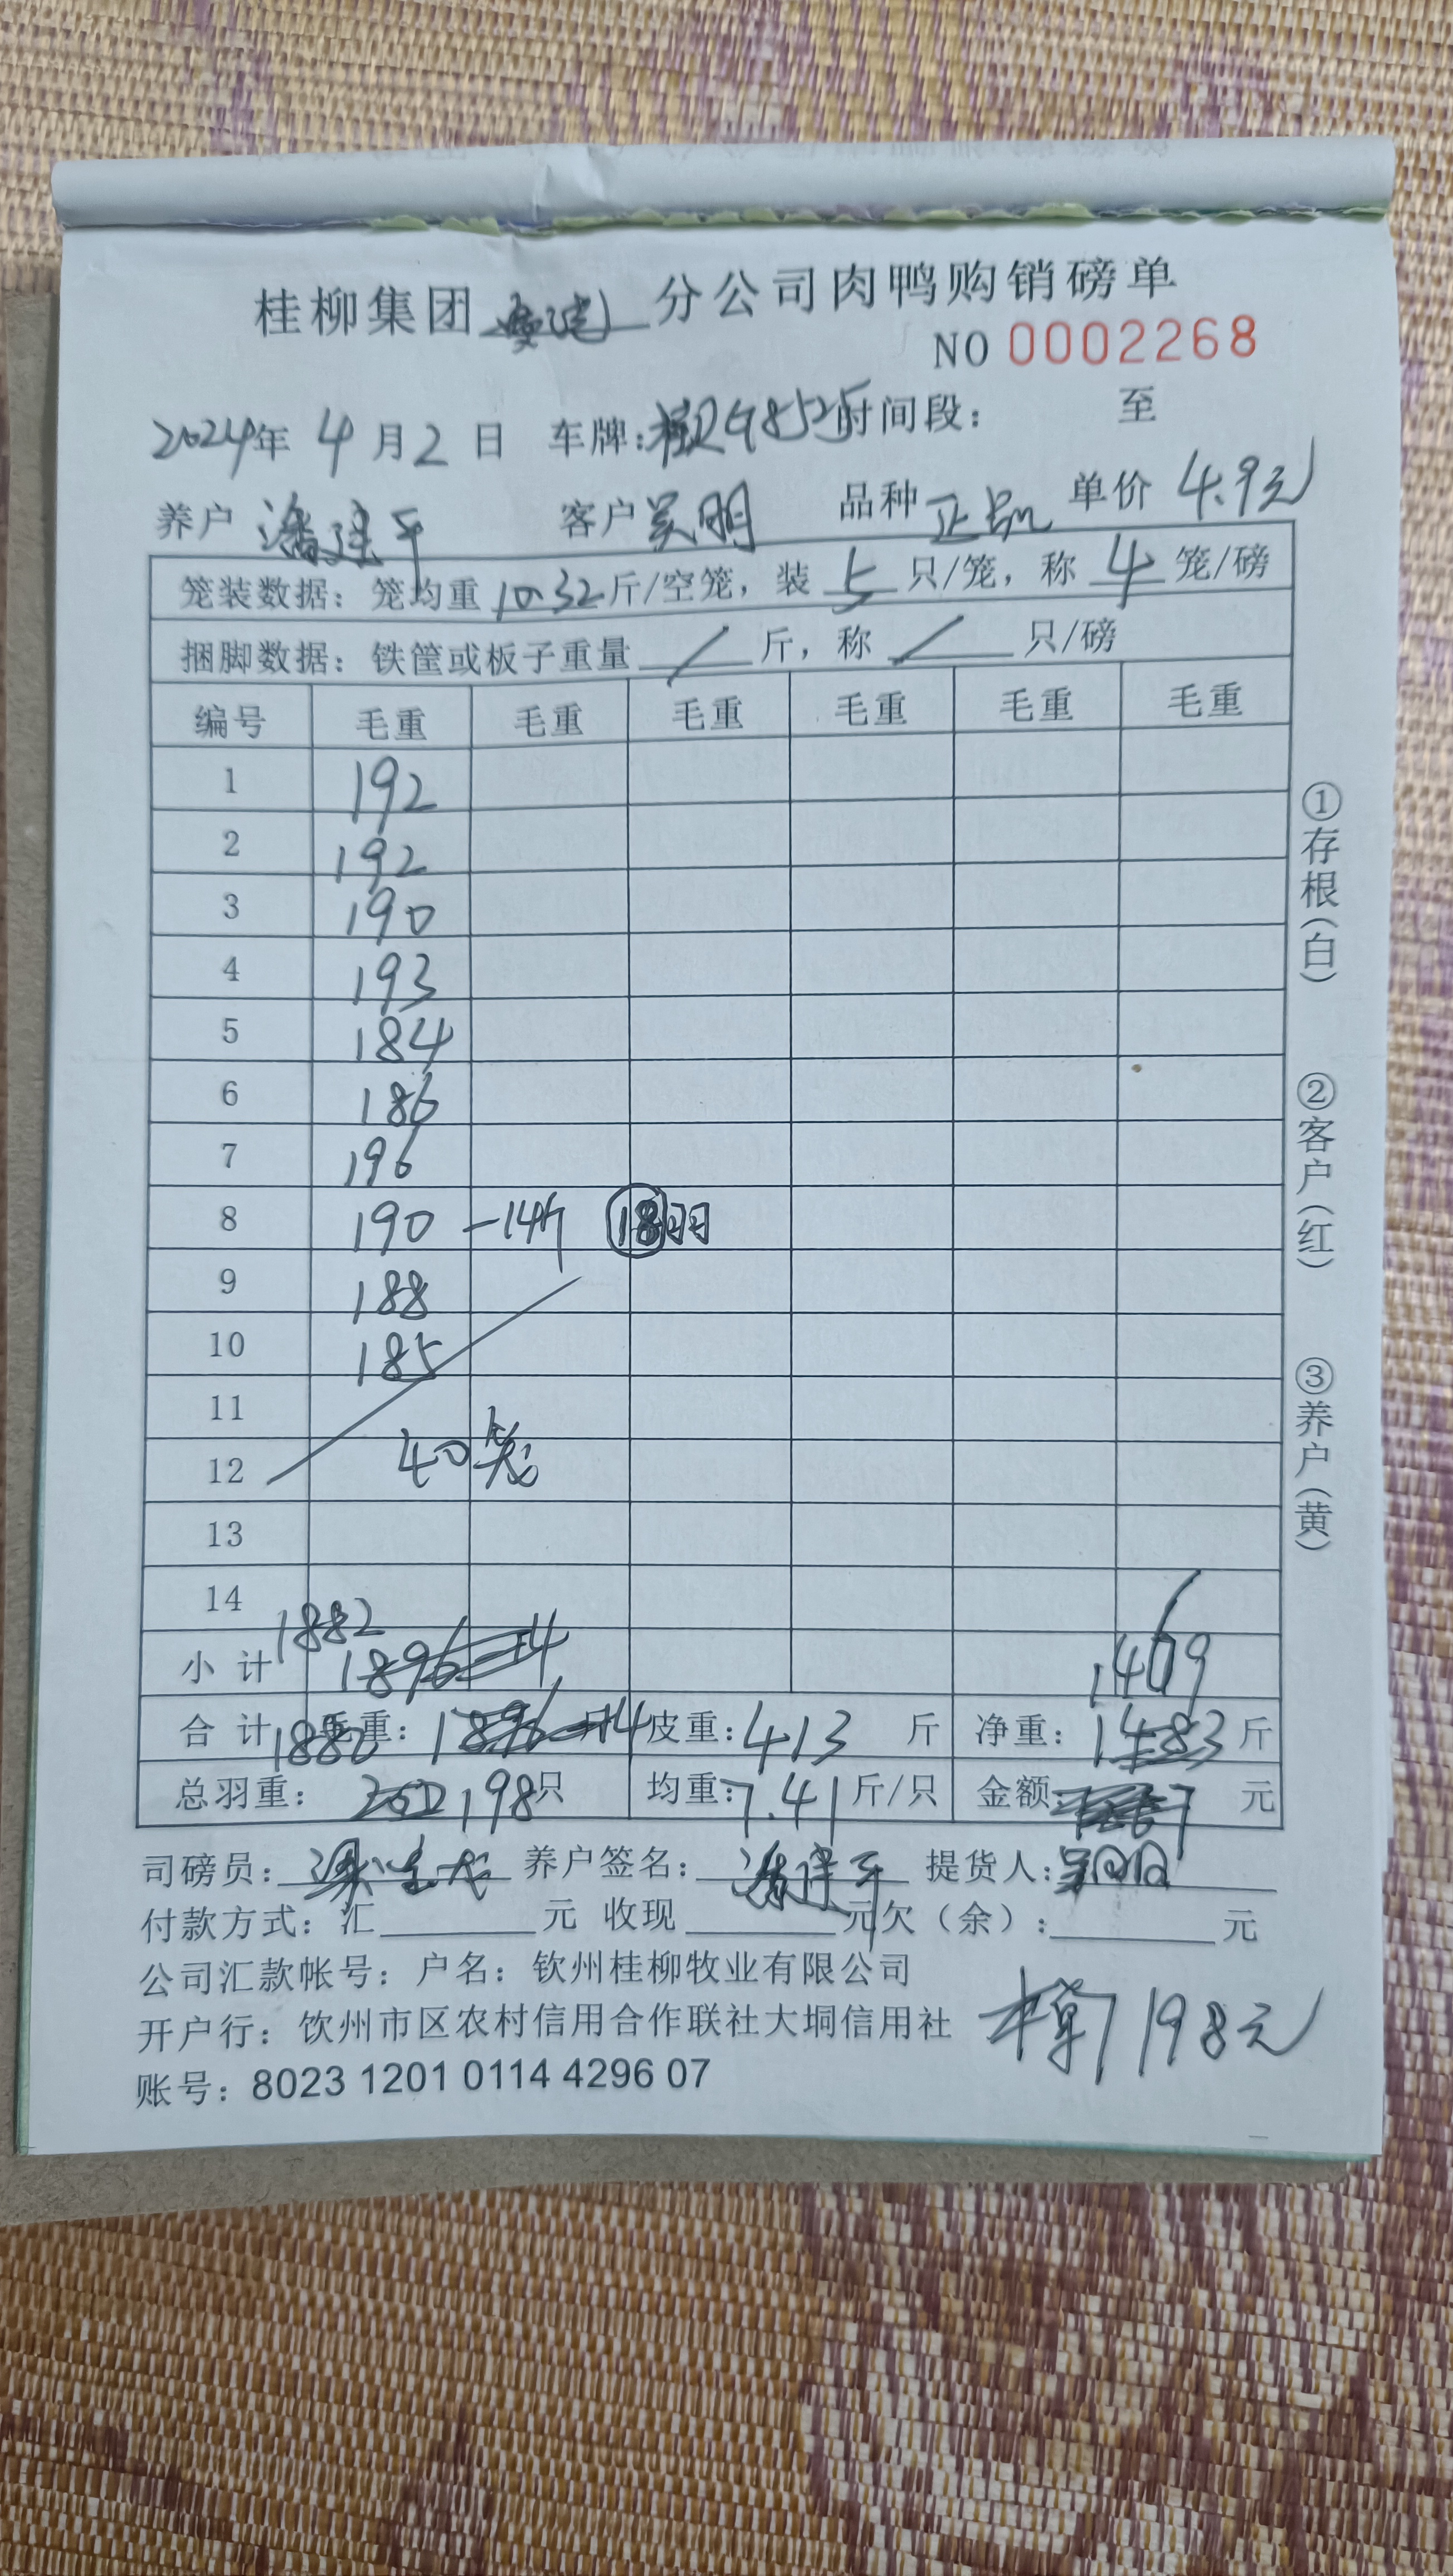 桂柳集团 分公司肉鸭购销磅单
NO 0002268
2024年 4 月 2 日 车牌: 时间段: 至
养户 潘建平 客户 吴明 品种 正品 单价 4.9元
笼装数据: 笼均重 10.32 斤/空笼, 装 5 只/笼, 称 4 笼/磅
捆脚数据: 铁筐或板子重量 / 斤, 称 / 只/磅
编号 毛重 毛重 毛重 毛重 毛重 毛重
1 192
2 192
3 190
4 193
5 184
6 186
7 196
8 190 -14斤 18羽
9 188
10 185
11
12 40笼
13
14
1882
小 计 1896-14 1469
合 计 毛重: 1880 1896-14 皮重: 413 斤 净重: 1483 斤
总羽重: 202 198只 均重: 7.41 斤/只 金额: 元
司磅员: 养户签名: 潘建平 提货人: 吴明
付款方式: 汇 元 收现 元欠（余）: 元
公司汇款帐号: 户名: 钦州桂柳牧业有限公司
开户行: 饮州市区农村信用合作联社大垌信用社
198元
账号: 8023 1201 0114 4296 07
①存根（白）
②客户（红）
③养户（黄）